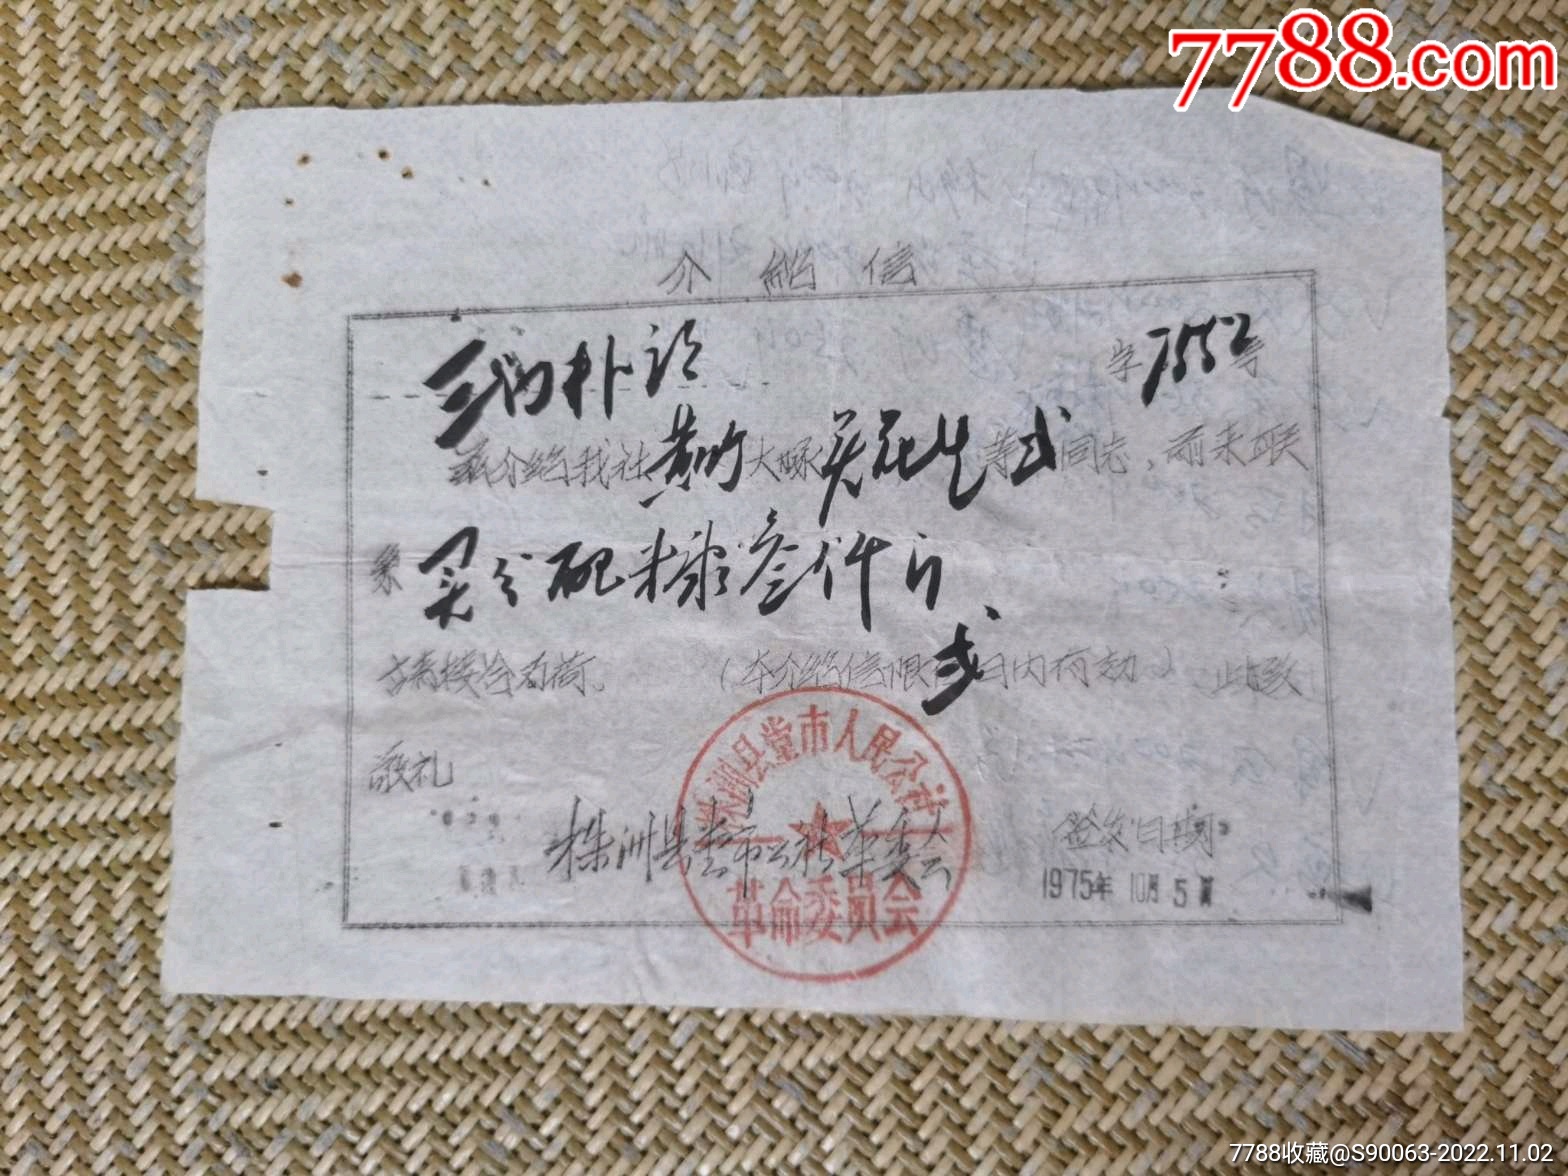 7788.com
介绍信
字7552号
兹介绍我社黄竹大队吴花生等弍同志，前来联
系买分配米糠叁仟斤
请接洽为荷。（本介绍信限弍日内有效）此致
敬礼
株洲县堂市人民公社
革命委员会
株洲县堂市公社革委会
签发日期
1975年10月5日
7788收藏@S90063-2022.11.02